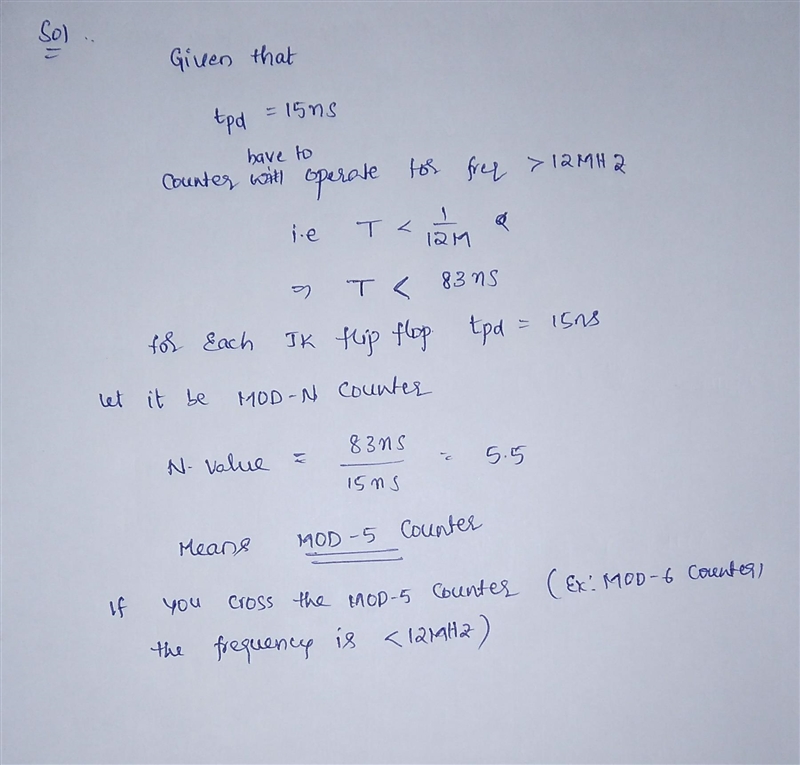 Sol..
Given that
tpd = 15ns
have to
Counter operate for freq > 12MHz
i.e T < 1/12M
⇒ T < 83ns
for Each JK flip flop tpd = 15ns
let it be MOD-N Counter
N-Value = 83ns/15ns = 5.5
Means MOD-5 Counter
If you cross the MOD-5 Counter (Ex: MOD-6 Counter,
the frequency is <12MHz)